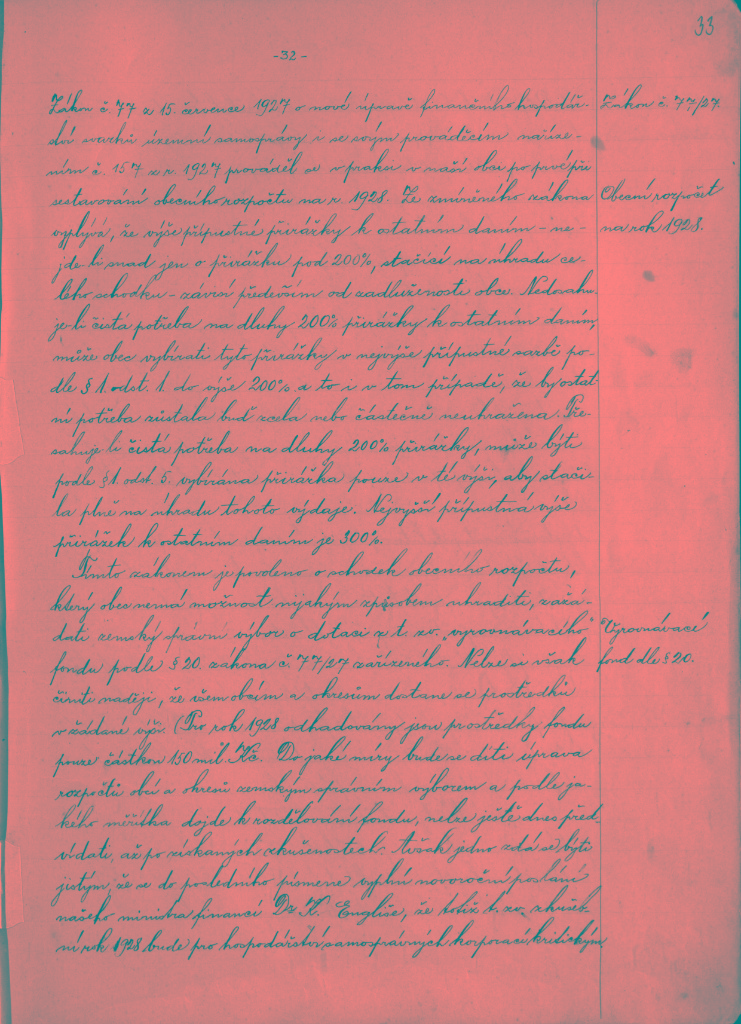 33
-32-
Zákon č. 77 z 15. července 1927 o nové úpravě finančního hospodář-
ství svazků územní samosprávy i se svým prováděcím naříze-
ním č. 157 z r. 1927 prováděl se v praksi v naší obci po prvé při
sestavování obecního rozpočtu na r. 1928. Ze zmíněného zákona
vyplývá, že výše přípustné přirážky k ostatním daním - ne-
jde-li snad jen o přirážku pod 200%, stačící na úhradu ce-
lého schodku - závisí především od zadluženosti obce. Nedosahu-
je-li čistá potřeba na dluhy 200% přirážky k ostatním daním,
může obec vybírati tyto přirážky v nejvýše přípustné sazbě po-
dle § 1. odst. 1. do výše 200% a to i v tom případě, že by ostat-
ní potřeba zůstala buď zcela nebo částečně neuhražena. Pře-
sahuje-li čistá potřeba na dluhy 200% přirážky, může býti
podle § 1. odst. 5. vybírána přirážka pouze v té výši, aby stači-
la plně na úhradu tohoto výdaje. Nejvyšší přípustná výše
přirážek k ostatním daním je 300%.
Tímto zákonem je povoleno o schodek obecního rozpočtu,
který obec nemá možnost nijakým způsobem uhraditi, zažá-
dati zemský správní výbor o dotaci z t. zv. "vyrovnávacího"
fondu podle § 20. zákona č. 77/27 zařízeného. Nelze si však
činiti naději, že všem obcím a okresům dostane se prostředků
v žádané výši. (Pro rok 1928 odhadovány jsou prostředky fondu
pouze částkou 150 mil. Kč. Do jaké míry bude se díti úprava
rozpočtů obcí a okresů zemským správním výborem a podle ja-
kého měřítka dojde k rozdělování fondu, nelze ještě dnes před-
vídati, až po získaných zkušenostech. Avšak jedno zdá se býti
jistým, že se do posledního písmene vyplní novoroční poslání
našeho ministra financí Dr. K. Engliše, že totiž t. zv. zkušeb-
ní rok 1928 bude pro hospodářství samosprávných korporací kritickým
Zákon č. 77/27.
Obecní rozpočet
na rok 1928.
"Vyrovnávací
fond dle § 20.